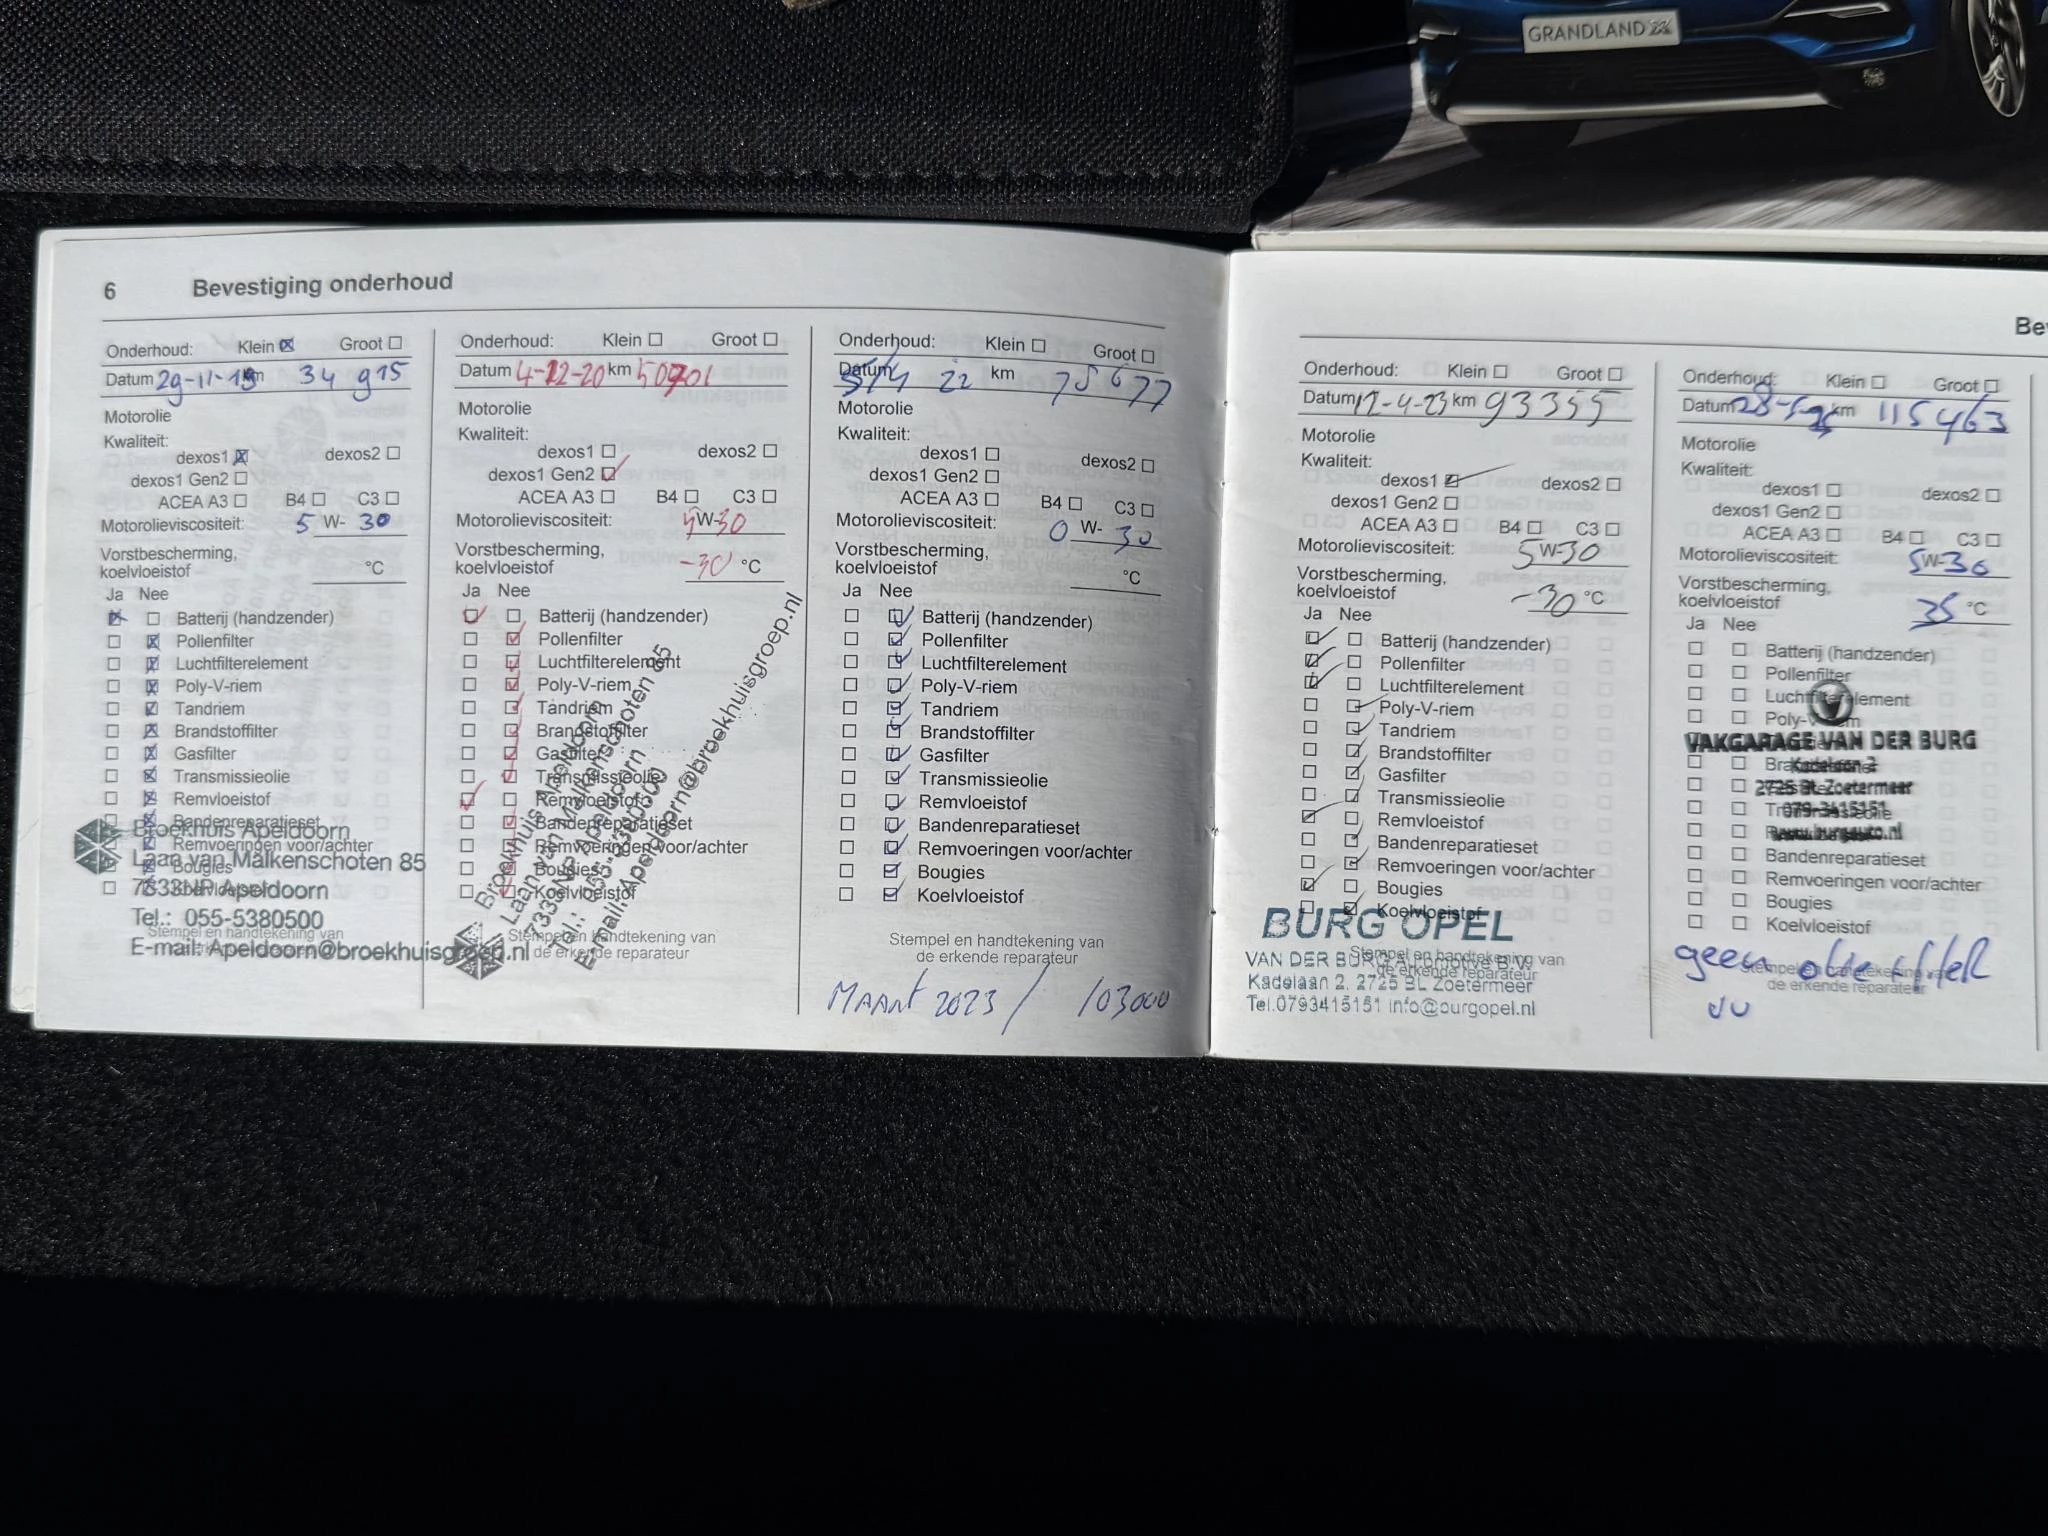 GRANDLAND X
6 Bevestiging onderhoud
Onderhoud: Klein ☒ Groot ☐
Datum 29-11-19 km 34 915
Motorolie
Kwaliteit:
dexos1 ☒ dexos2 ☐
dexos1 Gen2 ☐
ACEA A3 ☐ B4 ☐ C3 ☐
Motorolieviscositeit: 5 W- 30
Vorstbescherming,
koelvloeistof °C
Ja Nee
Batterij (handzender)
Pollenfilter
Luchtfilterelement
Poly-V-riem
Tandriem
Brandstoffilter
Gasfilter
Transmissieolie
Remvloeistof
Bandenreparatieset
Remvoeringen voor/achter
Bougies
Koelvloeistof
Stempel en handtekening van
de erkende reparateur
Broekhuis Apeldoorn
Laan van Malkenschoten 85
7333NP Apeldoorn
Tel.: 055-5380500
E-mail: Apeldoorn@broekhuisgroep.nl
Onderhoud: Klein ☐ Groot ☐
Datum 4-12-20 km 50901
Motorolie
Kwaliteit:
dexos1 ☐ dexos2 ☐
dexos1 Gen2 ☑
ACEA A3 ☐ B4 ☐ C3 ☐
Motorolieviscositeit: 5 W-30
Vorstbescherming,
koelvloeistof -30 °C
Ja Nee
Batterij (handzender)
Pollenfilter
Luchtfilterelement
Poly-V-riem
Tandriem
Brandstoffilter
Gasfilter
Transmissieolie
Remvloeistof
Bandenreparatieset
Remvoeringen voor/achter
Bougies
Koelvloeistof
Stempel en handtekening van
de erkende reparateur
Broekhuis Apeldoorn
Laan van Malkenschoten 85
7333NP Apeldoorn
Tel.: 055-5380500
E-mail: Apeldoorn@broekhuisgroep.nl
Onderhoud: Klein ☐ Groot ☐
Datum 5/4 22 km 75677
Motorolie
Kwaliteit:
dexos1 ☐ dexos2 ☐
dexos1 Gen2 ☐
ACEA A3 ☐ B4 ☐ C3 ☐
Motorolieviscositeit: 0 W- 30
Vorstbescherming,
koelvloeistof °C
Ja Nee
Batterij (handzender)
Pollenfilter
Luchtfilterelement
Poly-V-riem
Tandriem
Brandstoffilter
Gasfilter
Transmissieolie
Remvloeistof
Bandenreparatieset
Remvoeringen voor/achter
Bougies
Koelvloeistof
Stempel en handtekening van
de erkende reparateur
MAART 2023 / 103000
Onderhoud: Klein ☐ Groot ☐
Datum 12-4-23 km 93355
Motorolie
Kwaliteit:
dexos1 ☑ dexos2 ☐
dexos1 Gen2 ☐
ACEA A3 ☐ B4 ☐ C3 ☐
Motorolieviscositeit: 5 W-30
Vorstbescherming,
koelvloeistof -30 °C
Ja Nee
Batterij (handzender)
Pollenfilter
Luchtfilterelement
Poly-V-riem
Tandriem
Brandstoffilter
Gasfilter
Transmissieolie
Remvloeistof
Bandenreparatieset
Remvoeringen voor/achter
Bougies
Koelvloeistof
Stempel en handtekening van
de erkende reparateur
BURG OPEL
VAN DER BURG Automotive B.V.
Kadelaan 2, 2725 BL Zoetermeer
Tel.0793415151 info@burgopel.nl
Be
Onderhoud: Klein ☐ Groot ☐
Datum km 115463
Motorolie
Kwaliteit:
dexos1 ☐ dexos2 ☐
dexos1 Gen2 ☐
ACEA A3 ☐ B4 ☐ C3 ☐
Motorolieviscositeit: 5 W-30
Vorstbescherming,
koelvloeistof 35 °C
Ja Nee
Batterij (handzender)
Pollenfilter
Luchtfilterelement
VAKGARAGE VAN DER BURG
Kadelaan 2
2725 BL Zoetermeer
079-3415151
www.burgauto.nl
Bandenreparatieset
Remvoeringen voor/achter
Bougies
Koelvloeistof
Stempel en handtekening van
de erkende reparateur
geen